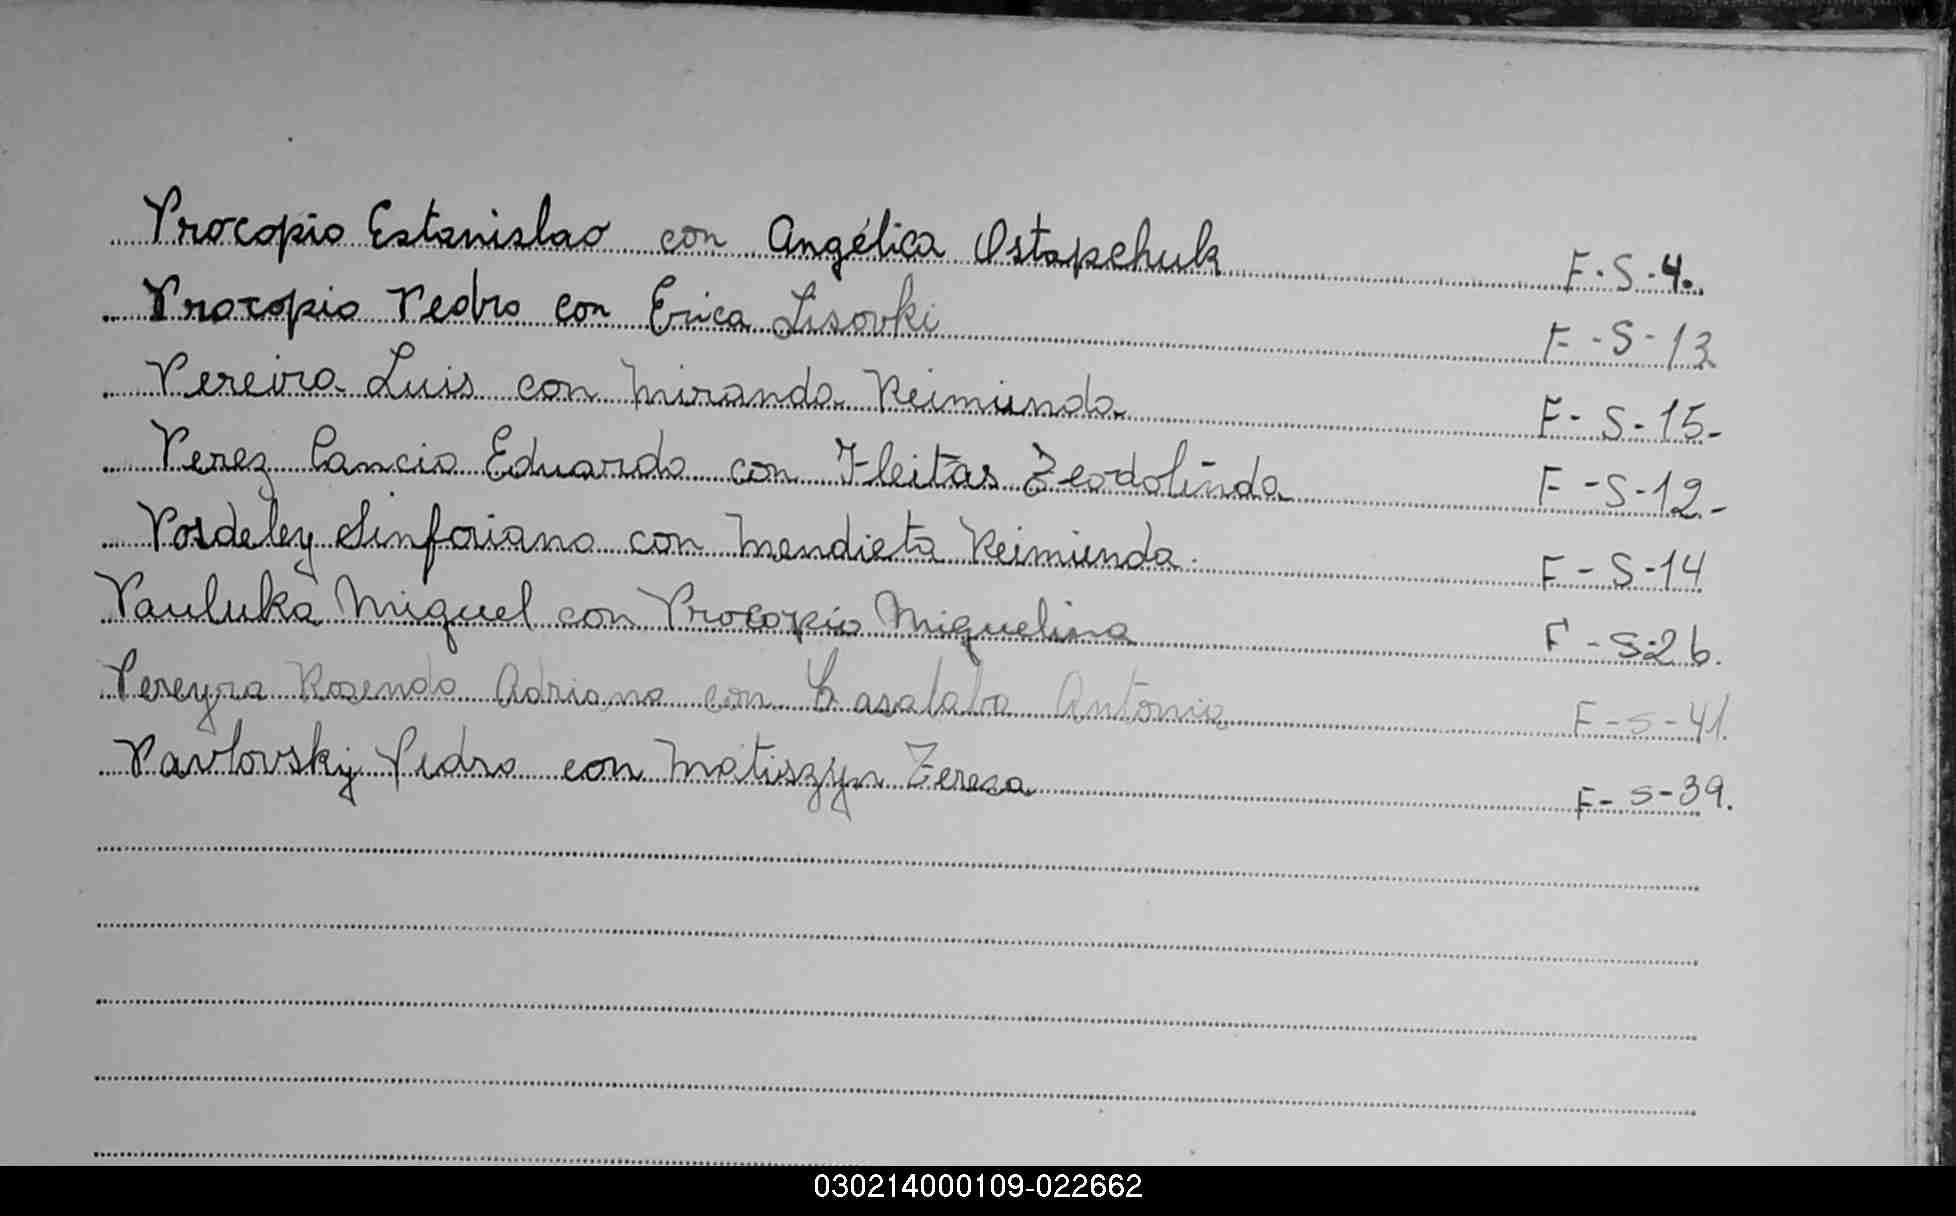 Procopio Estanislao con Angélica Ostapchuk F-S-4.
Procopio Pedro con Erica Lisovki F-S-13
Pereira Luis con Miranda Reimunda F-S-15-
Perez Cancio Eduardo con Fleitas Teodolinda F-S-12-
Posdeley Sinforiano con Mendieta Reimunda. F-S-14
Pauluka Miguel con Procopio Miguelina F-S-26.
Pereyra Rosendo Adriano con Antonia F-S-41.
Pavlovsky Pedro con Matiszyn Teresa F-S-39.
030214000109-022662